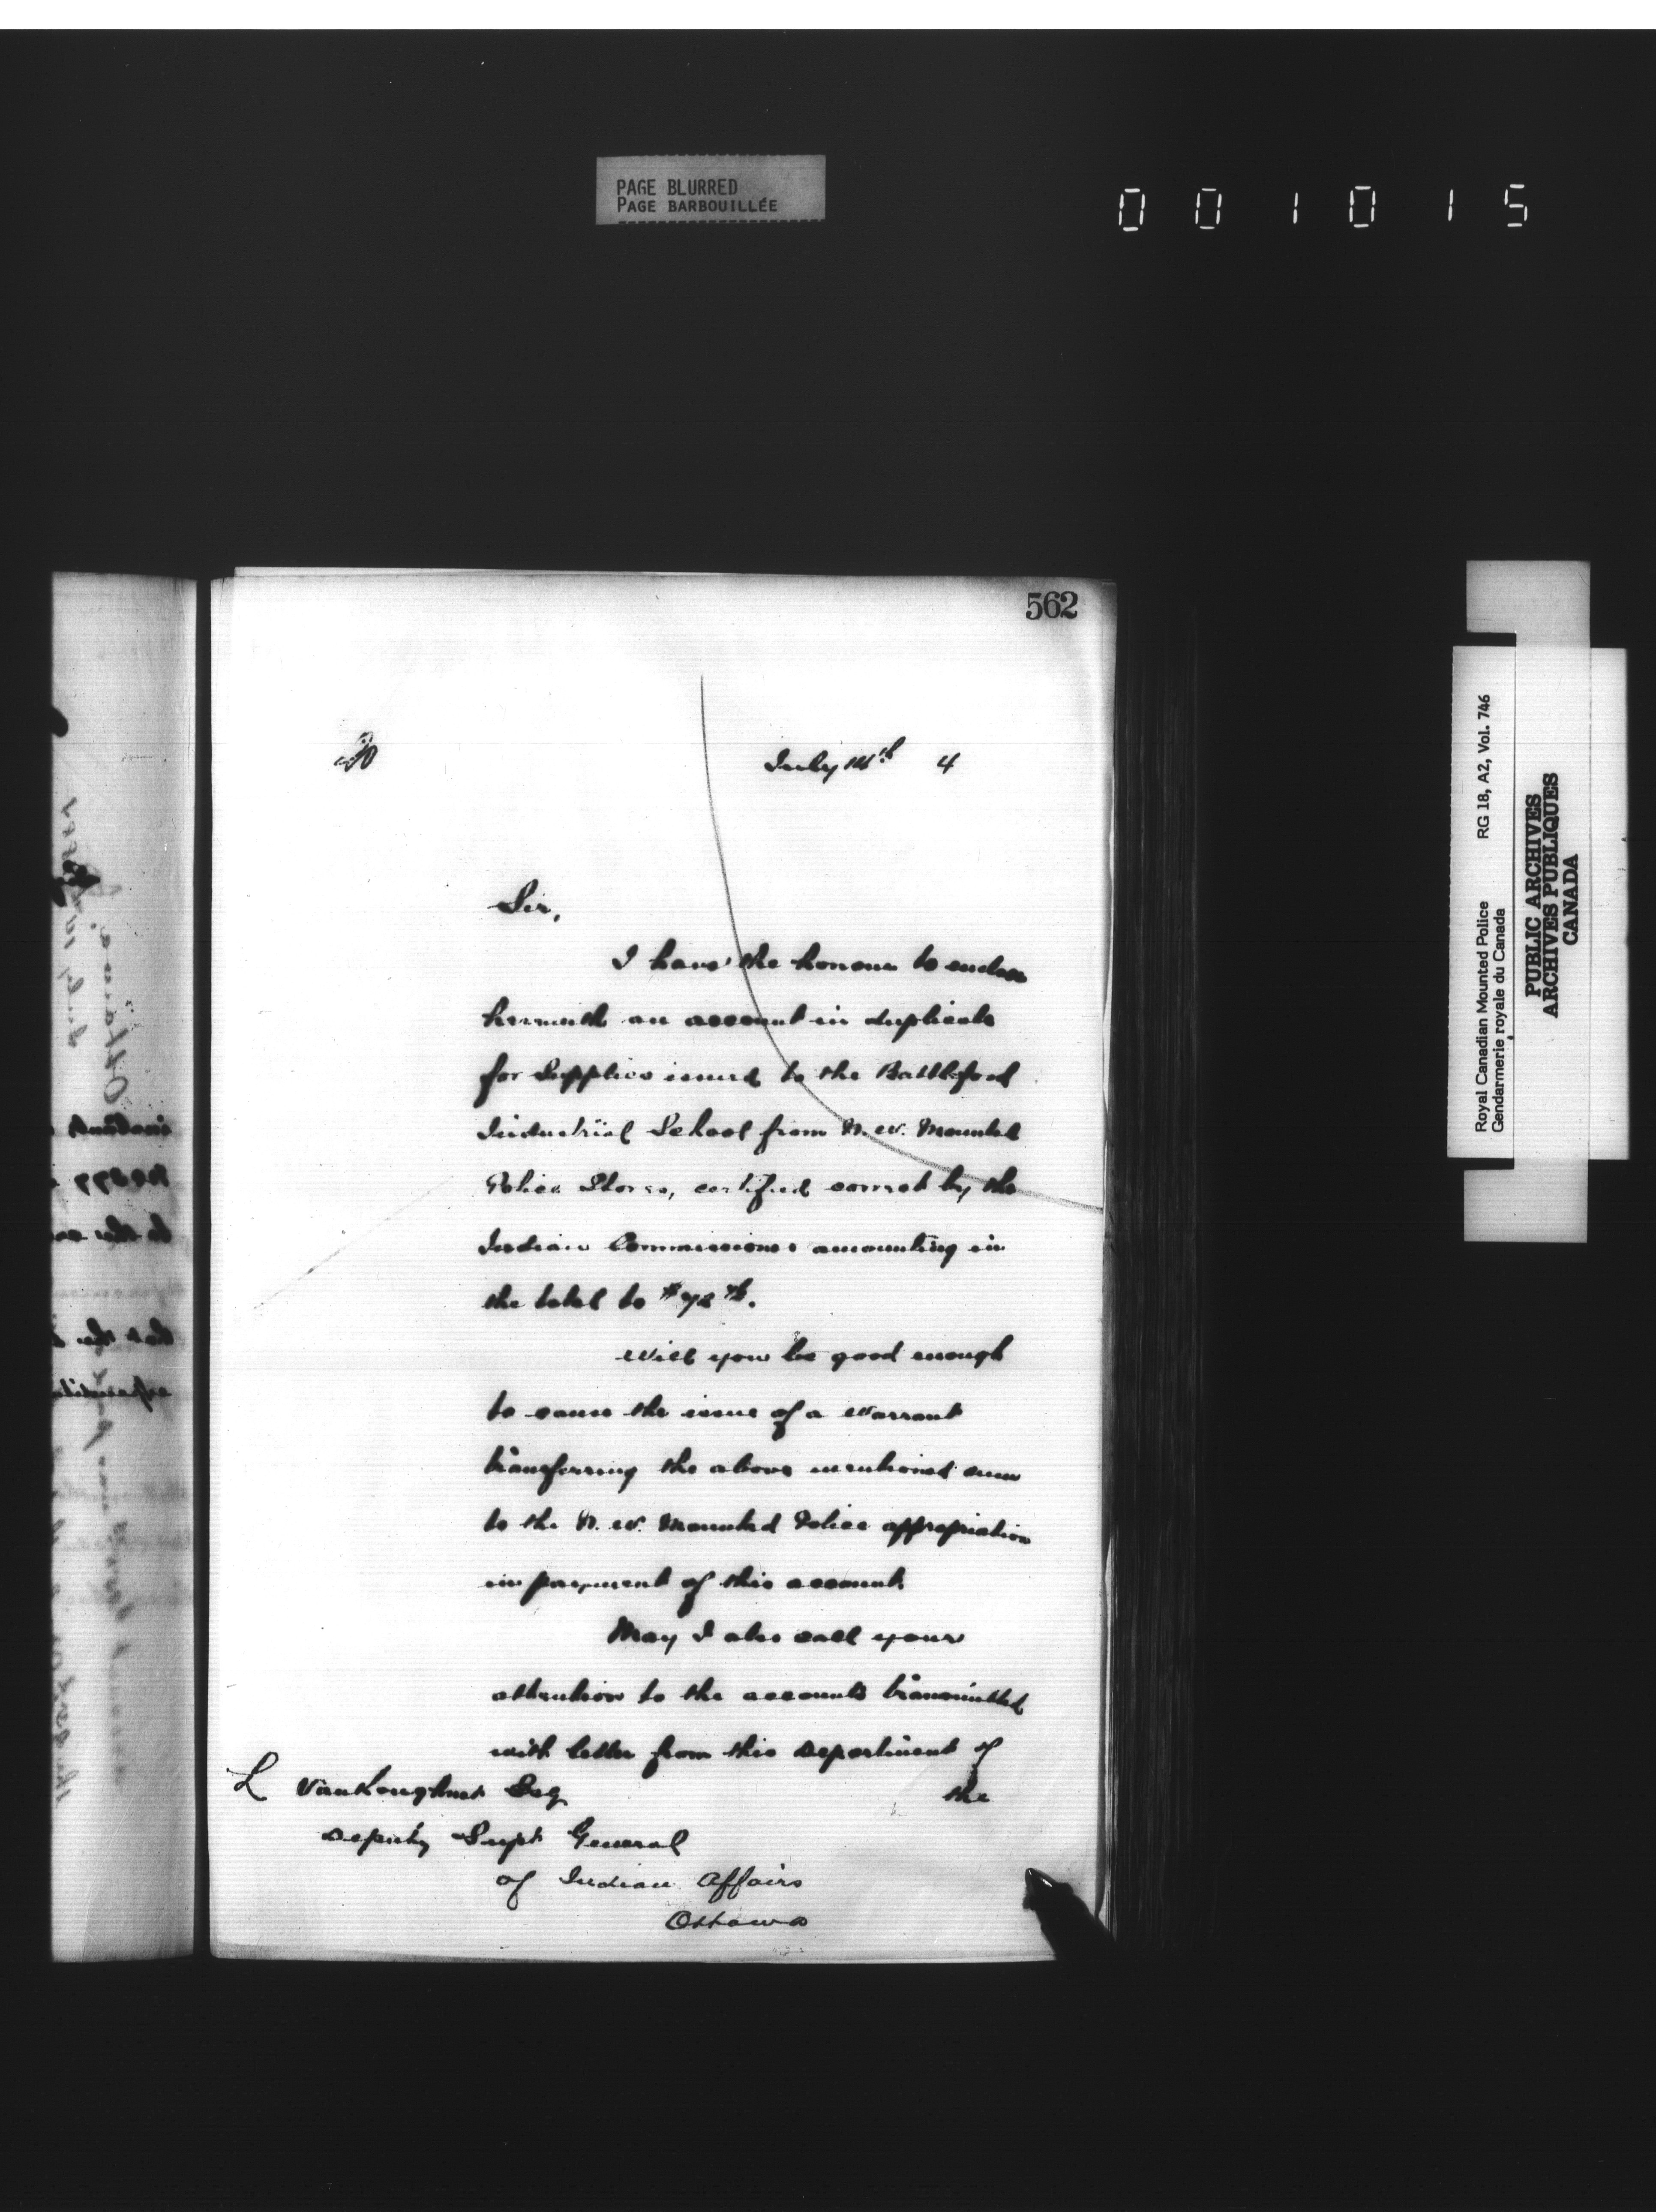 PAGE BLURRED
PAGE BARBOUILLÉE
001015
562
July 14th 4
Sir,
I have the honour to enclose
herewith an account in duplicate
for Supplies issued to the Battleford
Industrial School from N. W. Mounted
Police Stores, certified correct by the
Indian Commissioner amounting in
the total to $72
Will you be good enough
to cause the issue of a Warrant
transferring the above mentioned sum
to the N. W. Mounted Police appropriation
in payment of this account.
May I also call your
attention to the accounts transmitted
with letter from this Department of
the
L Vankoughnet Esq
Deputy Supt General
of Indian Affairs
Ottawa
Royal Canadian Mounted Police RG 18, A2, Vol. 746
Gendarmerie royale du Canada
PUBLIC ARCHIVES
ARCHIVES PUBLIQUES
CANADA